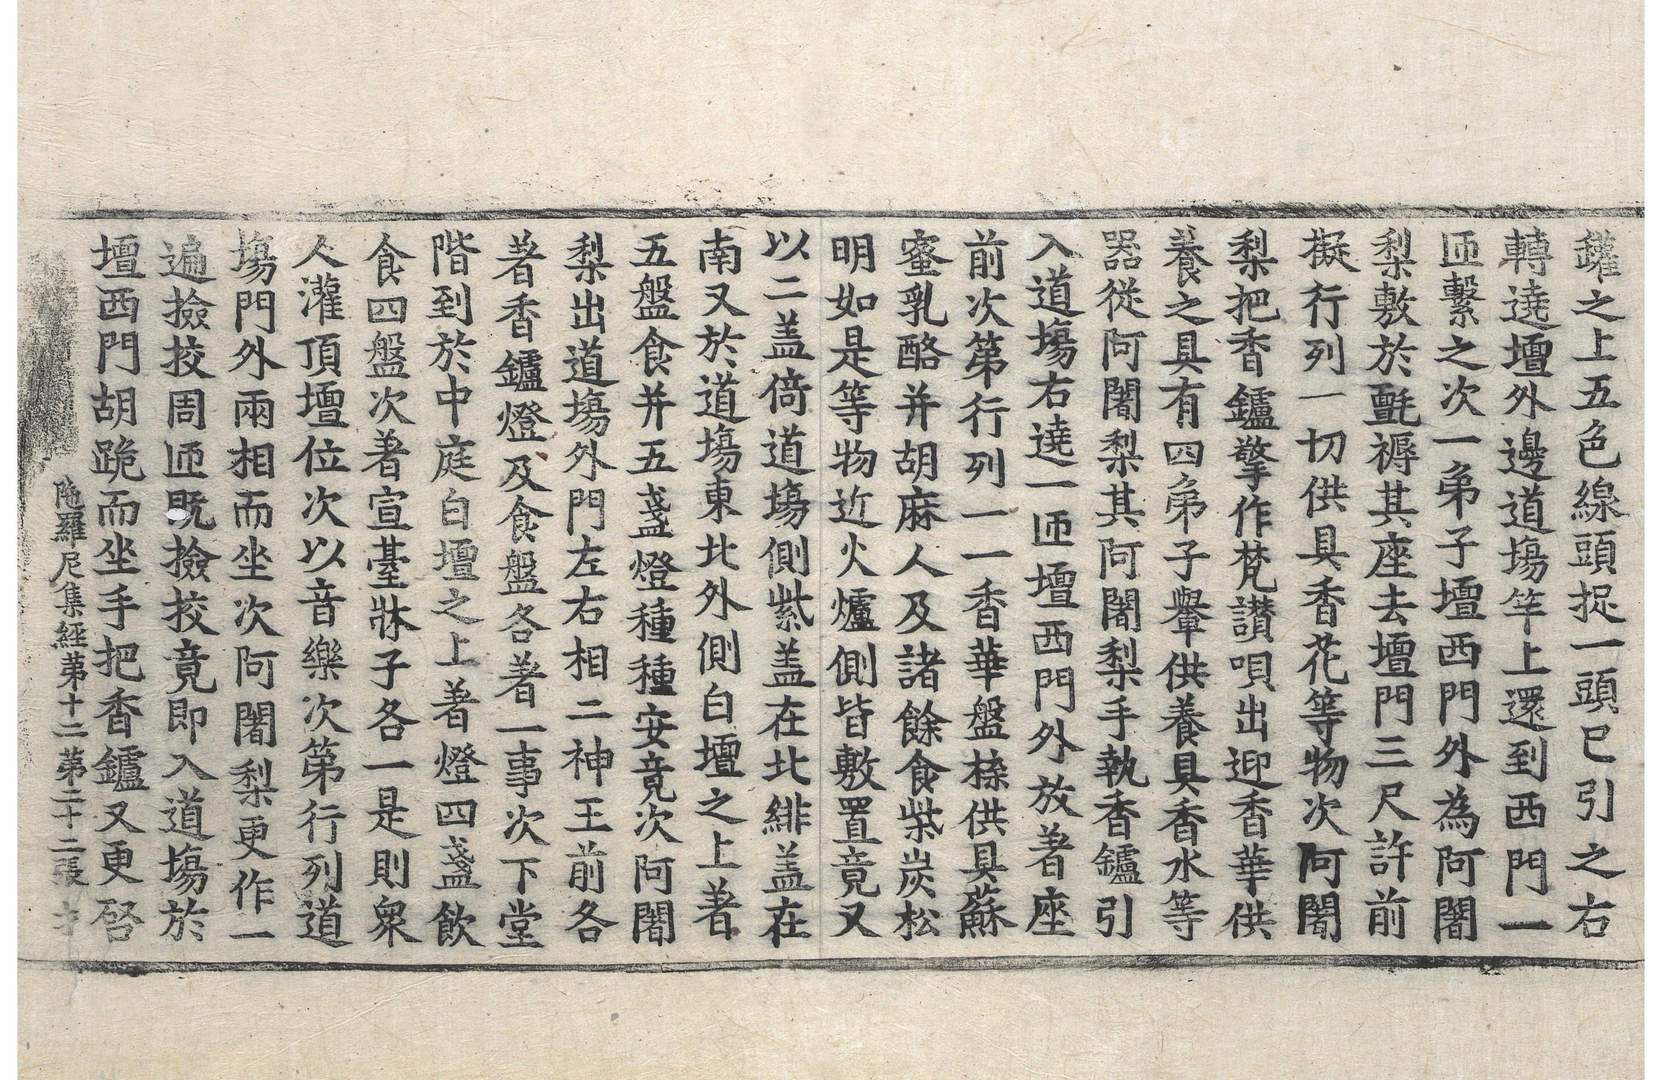 鑵之上五色線頭捉一頭已引之右
轉遶壇外邊道塲竿上還到西門一
迊繫之次一弟子壇西門外為阿闍
梨敷於㲲褥其座去壇門三尺許前
擬行列一切供具香花等物次阿闍
梨把香鑪擎作梵讃唄出迎香華供
養之具有四弟子轝供養具香水等
器從阿闍梨其阿闍梨手執香鑪引
入道塲右遶一迊壇西門外放著座
前次第行列一一香華盤𣓉供具蘇
蜜乳酪并胡麻人及諸餘食柴炭松
明如是等物近火爐側皆敷置竟又
以二盖倚道塲側紫盖在北緋盖在
南又於道塲東北外側白壇之上著
五盤食并五盞燈種種安竟次阿闍
梨出道塲外門左右相二神王前各
著香鑪燈及食盤各著一事次下堂
階到於中庭白壇之上著燈四盞飲
食四盤次著宣臺牀子各一是則衆
人灌頂壇位次以音樂次第行列道
塲門外兩相而坐次阿闍梨更作一
遍撿挍周迊既撿挍竟即入道塲於
壇西門胡跪而坐手把香鑪又更啓
陁羅尼集經第十二 第二十二張